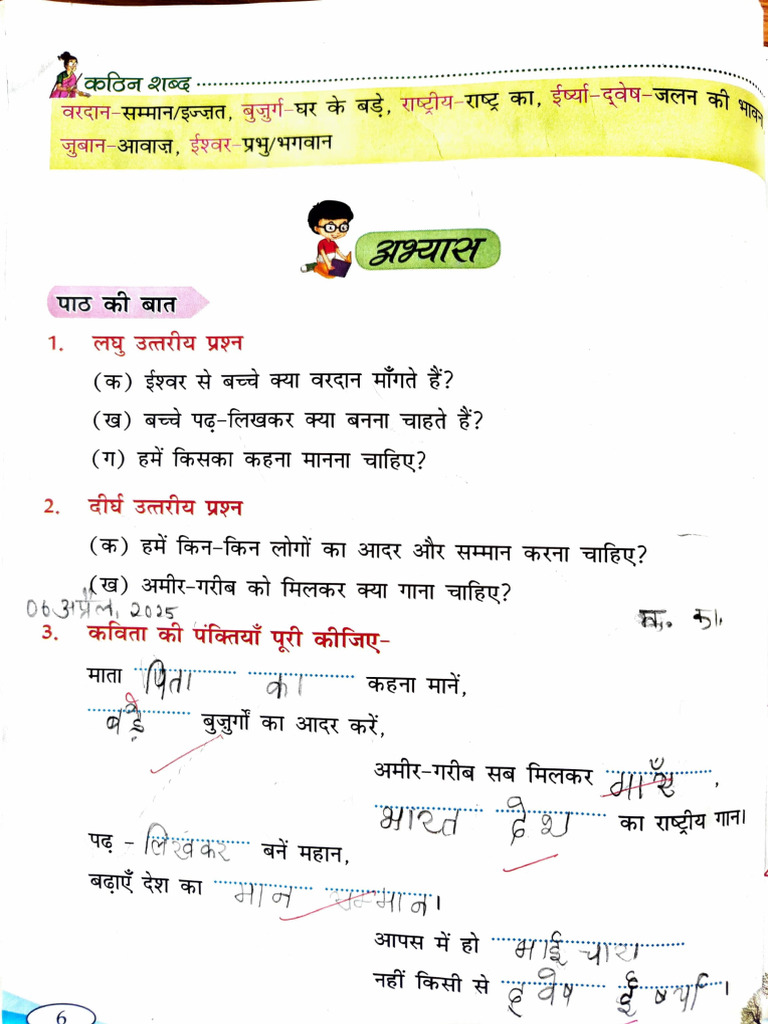 कठिन शब्द
वरदान-सम्मान/इज़्ज़त, बुज़ुर्ग-घर के बड़े, राष्ट्रीय-राष्ट्र का, ईर्ष्या-द्वेष-जलन की भावन
ज़ुबान-आवाज़, ईश्वर-प्रभु/भगवान
अभ्यास
पाठ की बात
1. लघु उत्तरीय प्रश्न
(क) ईश्वर से बच्चे क्या वरदान माँगते हैं?
(ख) बच्चे पढ़-लिखकर क्या बनना चाहते हैं?
(ग) हमें किसका कहना मानना चाहिए?
2. दीर्घ उत्तरीय प्रश्न
(क) हमें किन-किन लोगों का आदर और सम्मान करना चाहिए?
(ख) अमीर-गरीब को मिलकर क्या गाना चाहिए?
06 अप्रैल, 2025 क. का.
3. कविता की पंक्तियाँ पूरी कीजिए-
माता पिता का कहना मानें,
बड़े बुज़ुर्गों का आदर करें,
अमीर-गरीब सब मिलकर गाएँ,
भारत देश का राष्ट्रीय गान।
पढ़ - लिखकर बनें महान,
बढ़ाएँ देश का मान सम्मान।
आपस में हो भाई चारा
नहीं किसी से द्वेष ई र्षर्या।
6